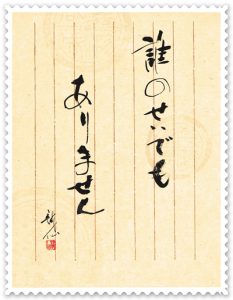 誰のせいでも
ありません